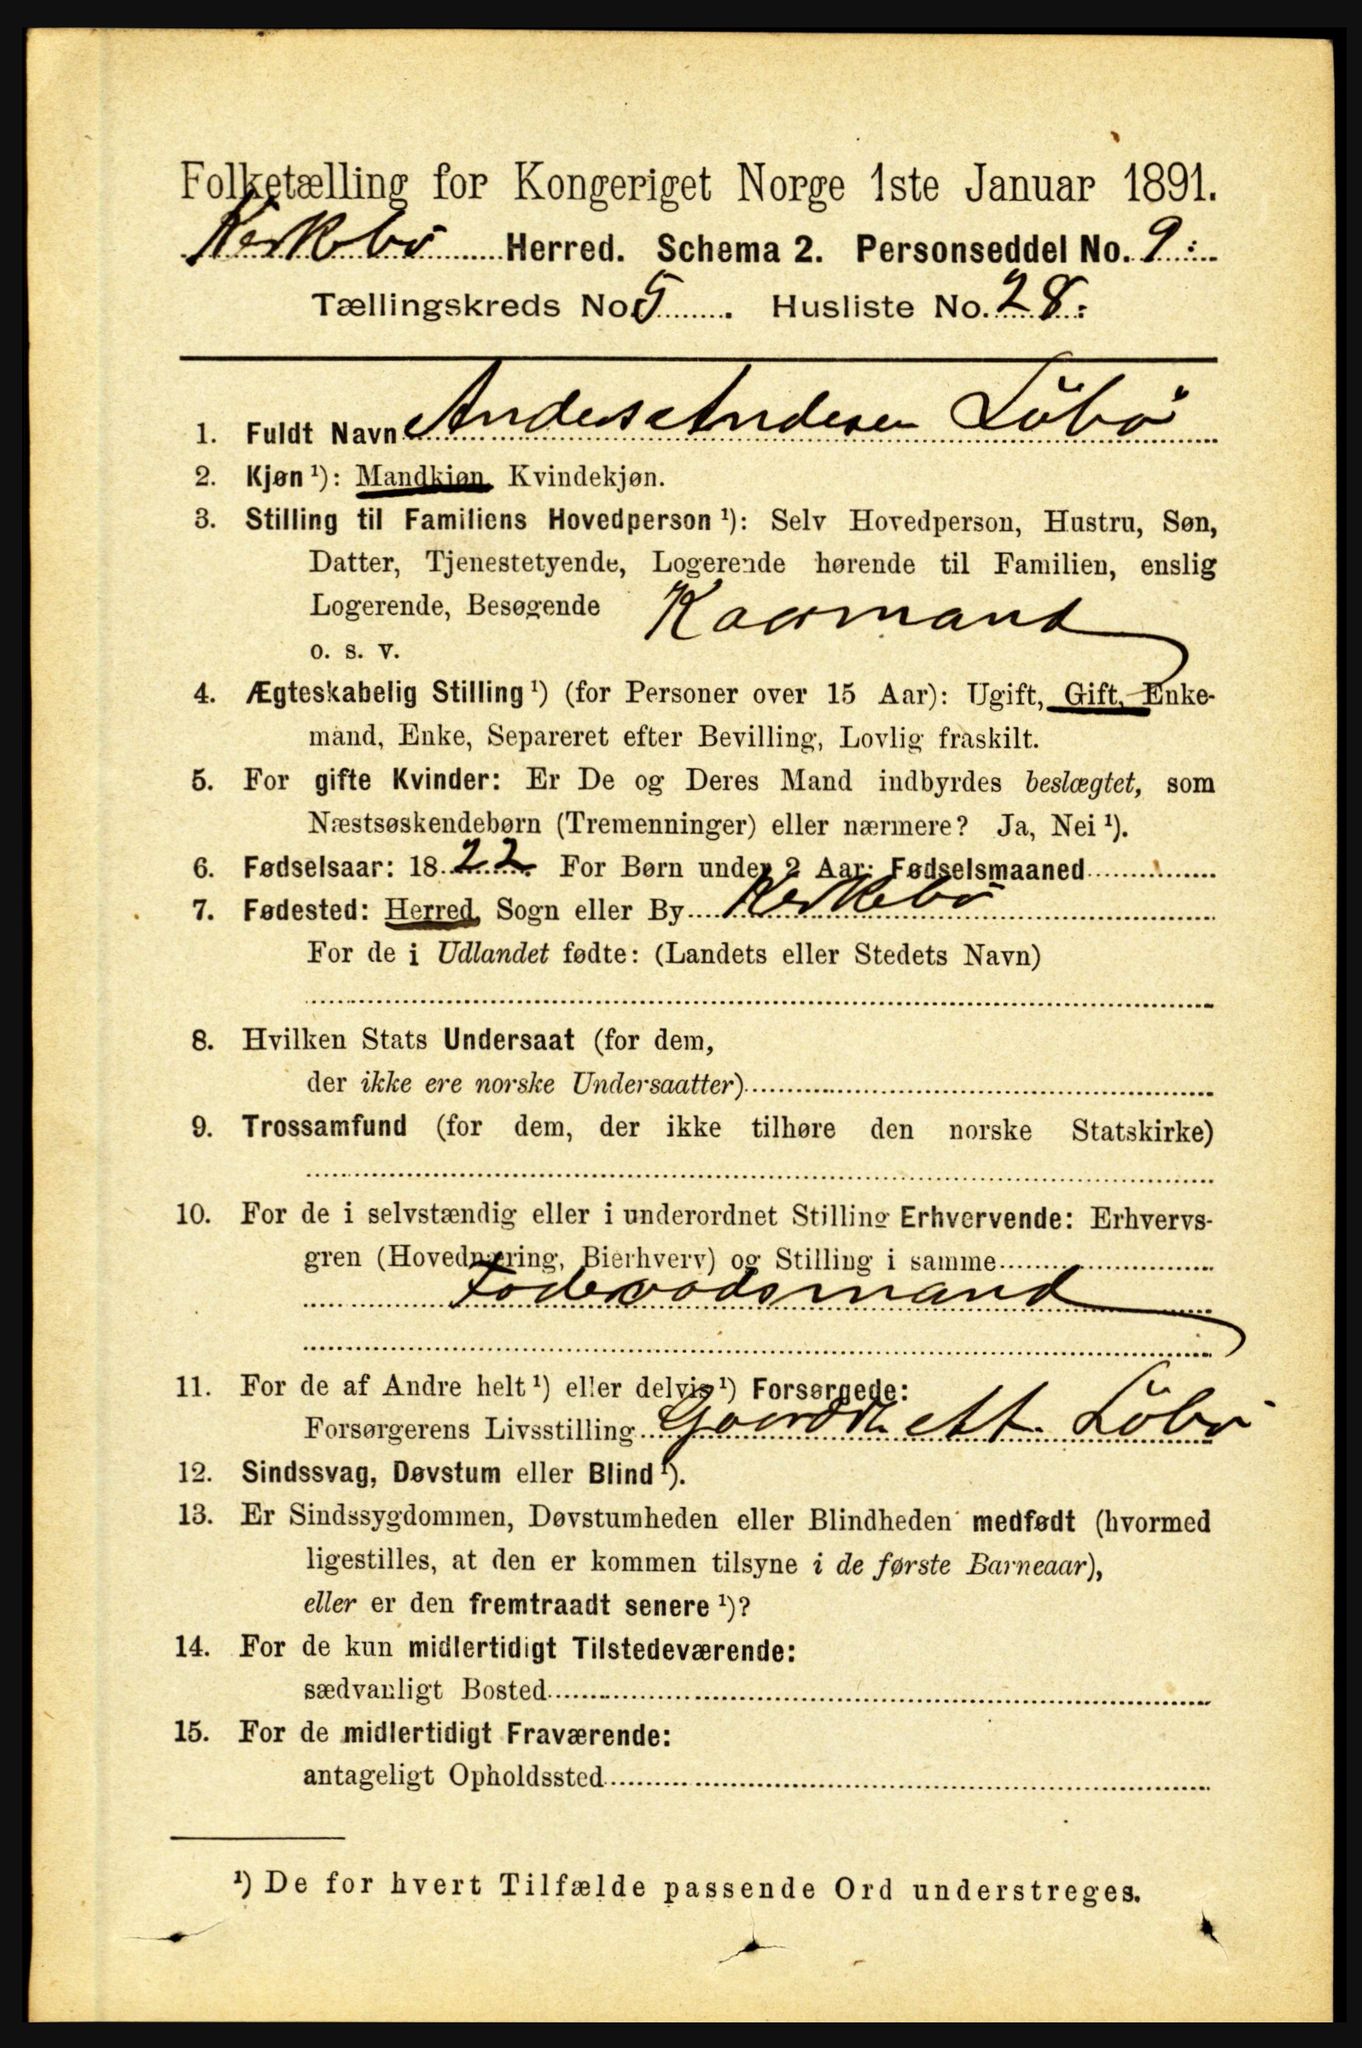 Folketælling for Kongeriget Norge 1ste Januar 1891.
Kirkebø Herred. Schema 2. Personseddel No. 9.
Tællingskreds No. 5. Husliste No. 28.
1. Fuldt Navn Anders Andersen Löbö
2. Kjøn ¹): Mandkjøn, Kvindekjøn.
3. Stilling til Familiens Hovedperson ¹): Selv Hovedperson, Hustru, Søn,
Datter, Tjenestetyende, Logerende hørende til Familien, enslig
Logerende, Besøgende Kaarmand
o. s. v.
4. Ægteskabelig Stilling ¹) (for Personer over 15 Aar): Ugift, Gift, Enke-
mand, Enke, Separeret efter Bevilling, Lovlig fraskilt.
5. For gifte Kvinder: Er De og Deres Mand indbyrdes beslægtet, som
Næstsøskendebørn (Tremenninger) eller nærmere? Ja, Nei ¹).
6. Fødselsaar: 1822. For Børn under 2 Aar: Fødselsmaaned
7. Fødested: Herred, Sogn eller By Kirkebø
For de i Udlandet fødte: (Landets eller Stedets Navn)
8. Hvilken Stats Undersaat (for dem,
der ikke ere norske Undersaatter)
9. Trossamfund (for dem, der ikke tilhøre den norske Statskirke)
10. For de i selvstændig eller i underordnet Stilling Erhvervende: Erhvervs-
gren (Hovednæring, Bierhverv) og Stilling i samme
Foderaadsmand
11. For de af Andre helt ¹) eller delvis ¹) Forsørgede:
Forsørgerens Livsstilling A. Löbö
12. Sindssvag, Døvstum eller Blind ¹).
13. Er Sindssygdommen, Døvstumheden eller Blindheden medfødt (hvormed
ligestilles, at den er kommen tilsyne i de første Barneaar),
eller er den fremtraadt senere ¹)?
14. For de kun midlertidigt Tilstedeværende:
sædvanligt Bosted
15. For de midlertidigt Fraværende:
antageligt Opholdssted
¹) De for hvert Tilfælde passende Ord understreges.